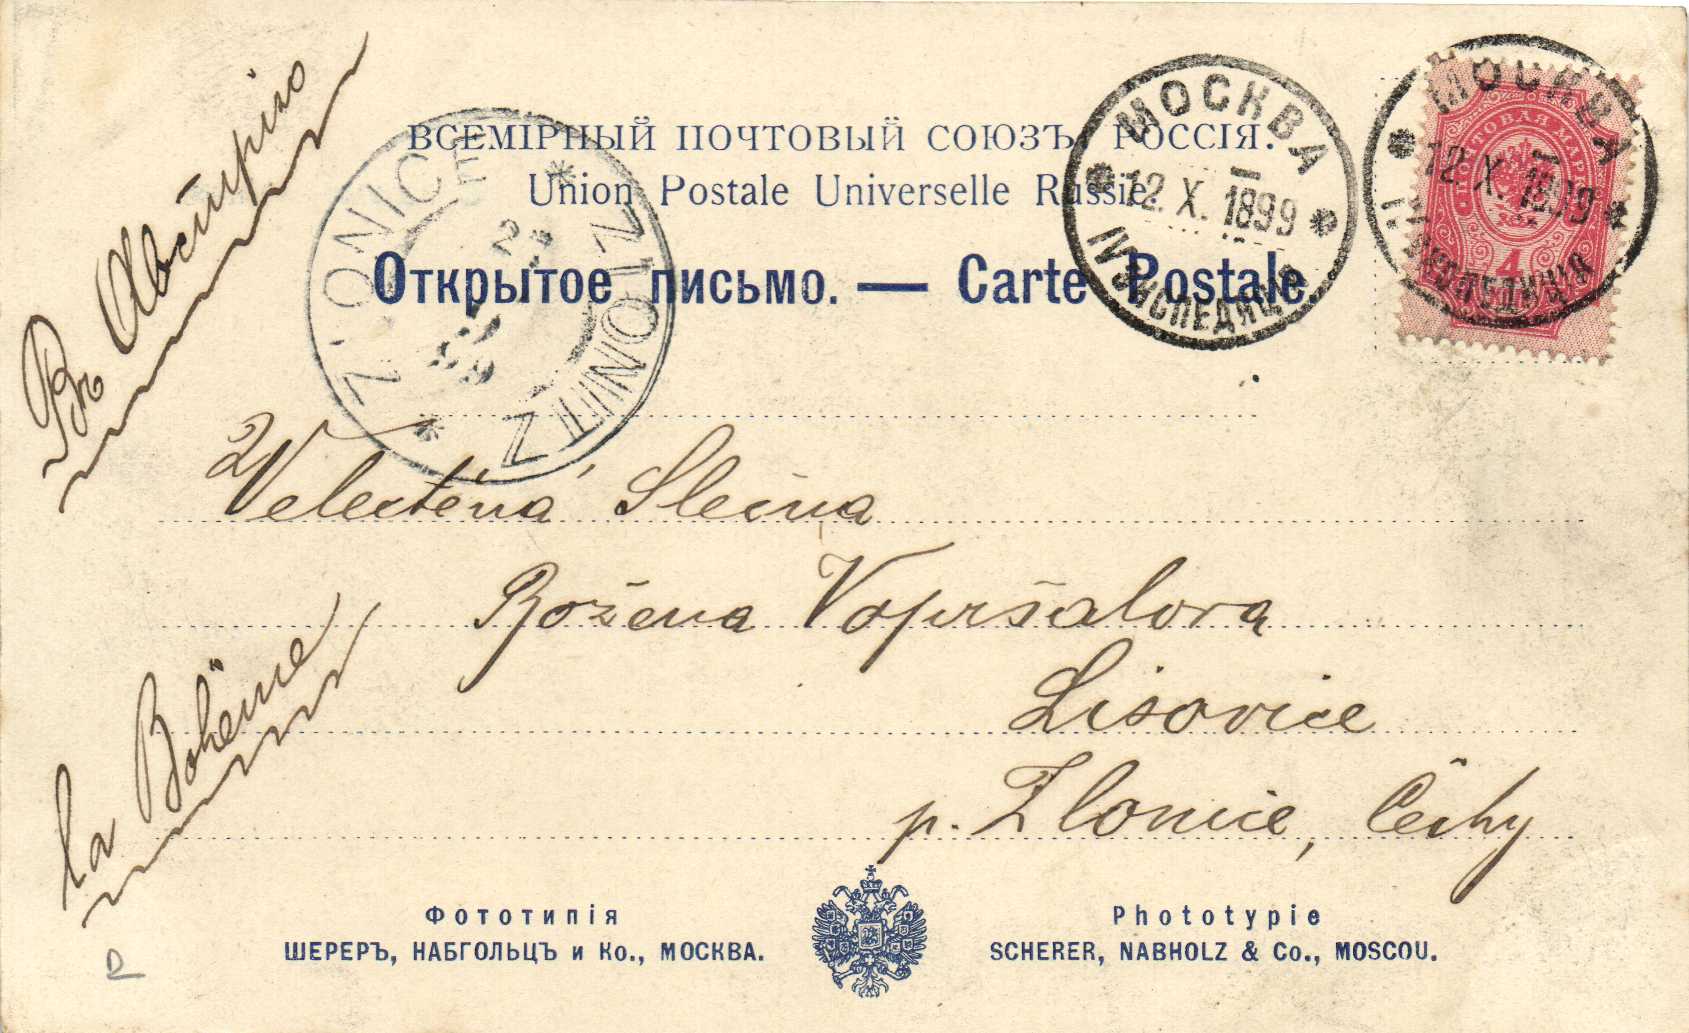 ВСЕМІРНЫЙ ПОЧТОВЫЙ СОЮЗЪ. РОССІЯ.
Union Postale Universelle Russie.
Открытое письмо. — Carte Postale.
МОСКВА
12. X. 1899
IV ЭКСПЕДИЦІЯ
МОСКВА
12. X. 1899
ЭКСПЕДИЦІЯ
ПОЧТОВАЯ МАРКА
4
ZLONICE
ZLONITZ
99
Въ Австрію
La Bohême
Velectěná Slečna
Božena Vopršalova
Lisovice
p. Zlonice, Čechy
Фототипія
ШЕРЕРЪ, НАБГОЛЬЦЪ и Ко., МОСКВА.
Phototypie
SCHERER, NABHOLZ & Co., MOSCOU.